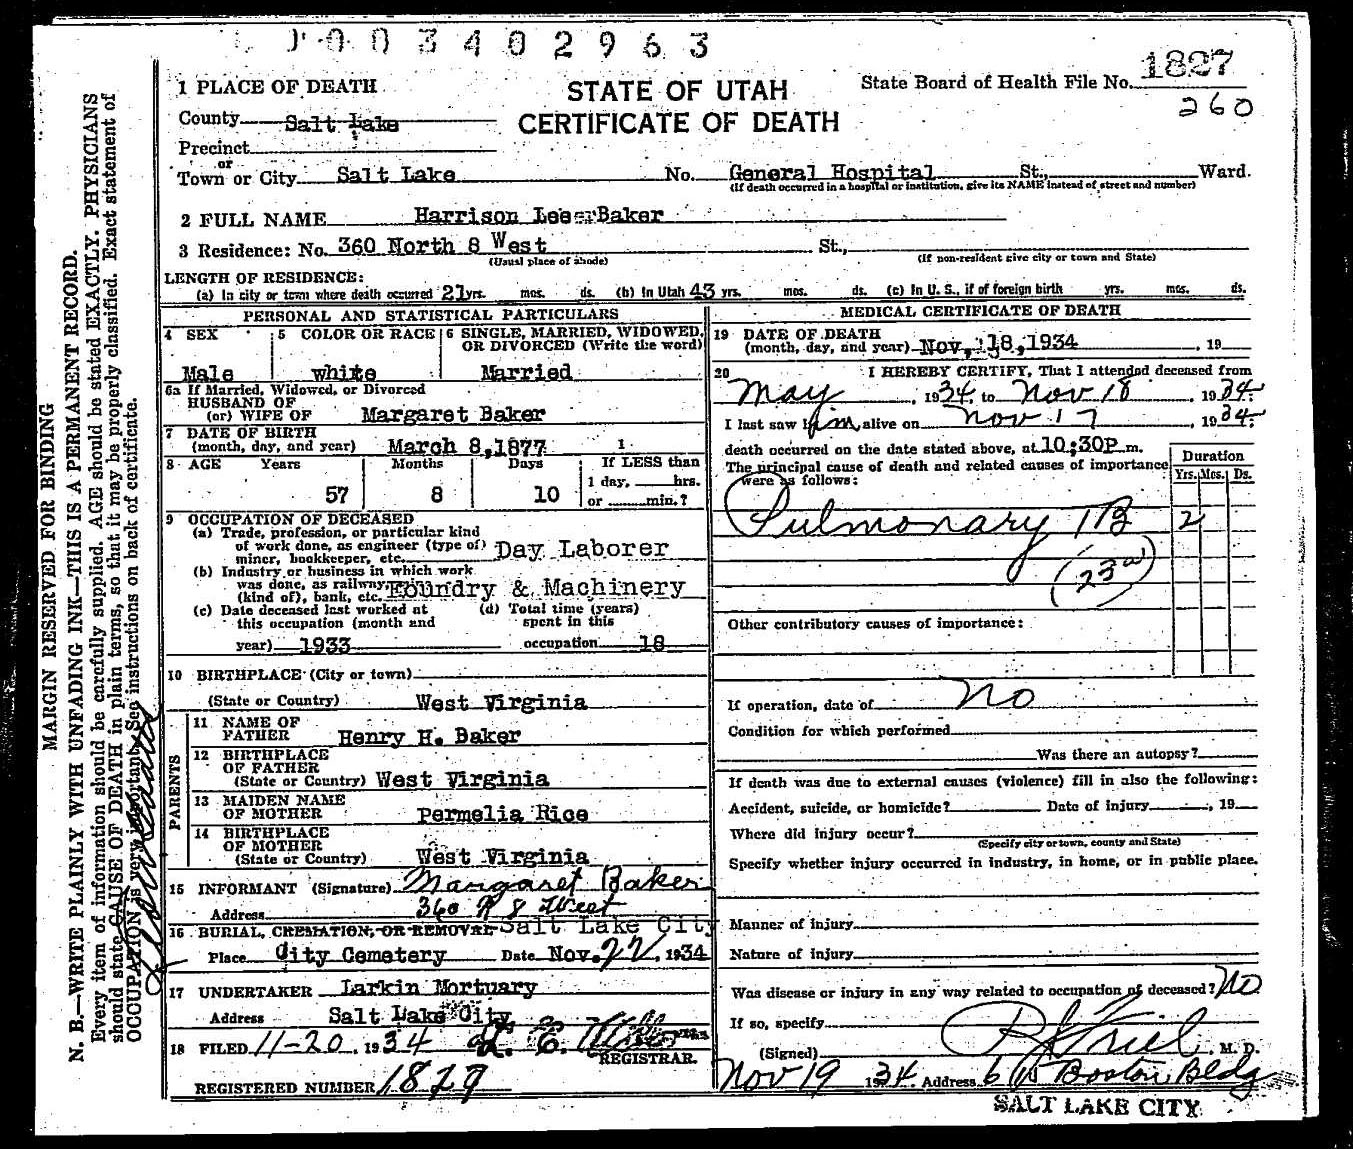 0 0 3 4 0 2 9 6 3
1 PLACE OF DEATH
STATE OF UTAH
CERTIFICATE OF DEATH
State Board of Health File No. 1827
260
County Salt Lake
Precinct
or
Town or City Salt Lake No. General Hospital St., Ward.
(If death occurred in a hospital or institution, give its NAME instead of street and number)
2 FULL NAME Harrison Lee Baker
3 Residence: No. 360 North 8 West St.,
(Usual place of abode) (If non-resident give city or town and State)
LENGTH OF RESIDENCE:
(a) In city or town where death occurred 21 yrs. mos. ds. (b) In Utah 43 yrs. mos. ds. (c) In U. S., if of foreign birth yrs. mos. ds.
PERSONAL AND STATISTICAL PARTICULARS
4 SEX
Male
5 COLOR OR RACE
white
6 SINGLE, MARRIED, WIDOWED,
OR DIVORCED (Write the word)
Married
6a If Married, Widowed, or Divorced
HUSBAND OF
(or) WIFE OF Margaret Baker
7 DATE OF BIRTH
(month, day, and year) March 8,1877 1
8 AGE Years Months Days If LESS than
1 day, hrs.
57 8 10 or min.?
9 OCCUPATION OF DECEASED
(a) Trade, profession, or particular kind
of work done, as engineer (type of)
miner, bookkeeper, etc. Day Laborer
(b) Industry or business in which work
was done, as railway
(kind of), bank, etc. Foundry & Machinery
(c) Date deceased last worked at (d) Total time (years)
this occupation (month and spent in this
year) 1933 occupation 18
10 BIRTHPLACE (City or town)
(State or Country) West Virginia
PARENTS
11 NAME OF
FATHER Henry H. Baker
12 BIRTHPLACE
OF FATHER
(State or Country) West Virginia
13 MAIDEN NAME
OF MOTHER Permelia Rice
14 BIRTHPLACE
OF MOTHER
(State or Country) West Virginia
15 INFORMANT (Signature) Margaret Baker
Address 360 N 8 West
16 BURIAL, CREMATION, OR REMOVAL Salt Lake City
Place City Cemetery Date Nov. 22, 1934
17 UNDERTAKER Larkin Mortuary
Address Salt Lake City
18 FILED 11-20, 1934
REGISTRAR.
REGISTERED NUMBER 1829
MEDICAL CERTIFICATE OF DEATH
19 DATE OF DEATH
(month, day, and year) Nov, 18,1934 , 19
20 I HEREBY CERTIFY, That I attended deceased from
May , 1934, to Nov 18 , 1934.
I last saw him alive on Nov 17 , 1934.
death occurred on the date stated above, at 10:30P m.
The principal cause of death and related causes of importance
were as follows:
Duration
Yrs. Mos. Ds.
Pulmonary TB 2
(23a)
Other contributory causes of importance:
If operation, date of No
Condition for which performed
Was there an autopsy?
If death was due to external causes (violence) fill in also the following:
Accident, suicide, or homicide? Date of injury , 19
Where did injury occur?
(Specify city or town, county and State)
Specify whether injury occurred in industry, in home, or in public place.
Manner of injury
Nature of injury
Was disease or injury in any way related to occupation of deceased? No
If so, specify
(Signed) M. D.
Nov 19 1934 Address 615 Boston Bldg
SALT LAKE CITY
MARGIN RESERVED FOR BINDING
N. B.—WRITE PLAINLY WITH UNFADING INK—THIS IS A PERMANENT RECORD.
Every item of information should be carefully supplied. AGE should be stated EXACTLY. PHYSICIANS
should state CAUSE OF DEATH in plain terms, so that it may be properly classified. Exact statement of
OCCUPATION is very important. See instructions on back of certificate.